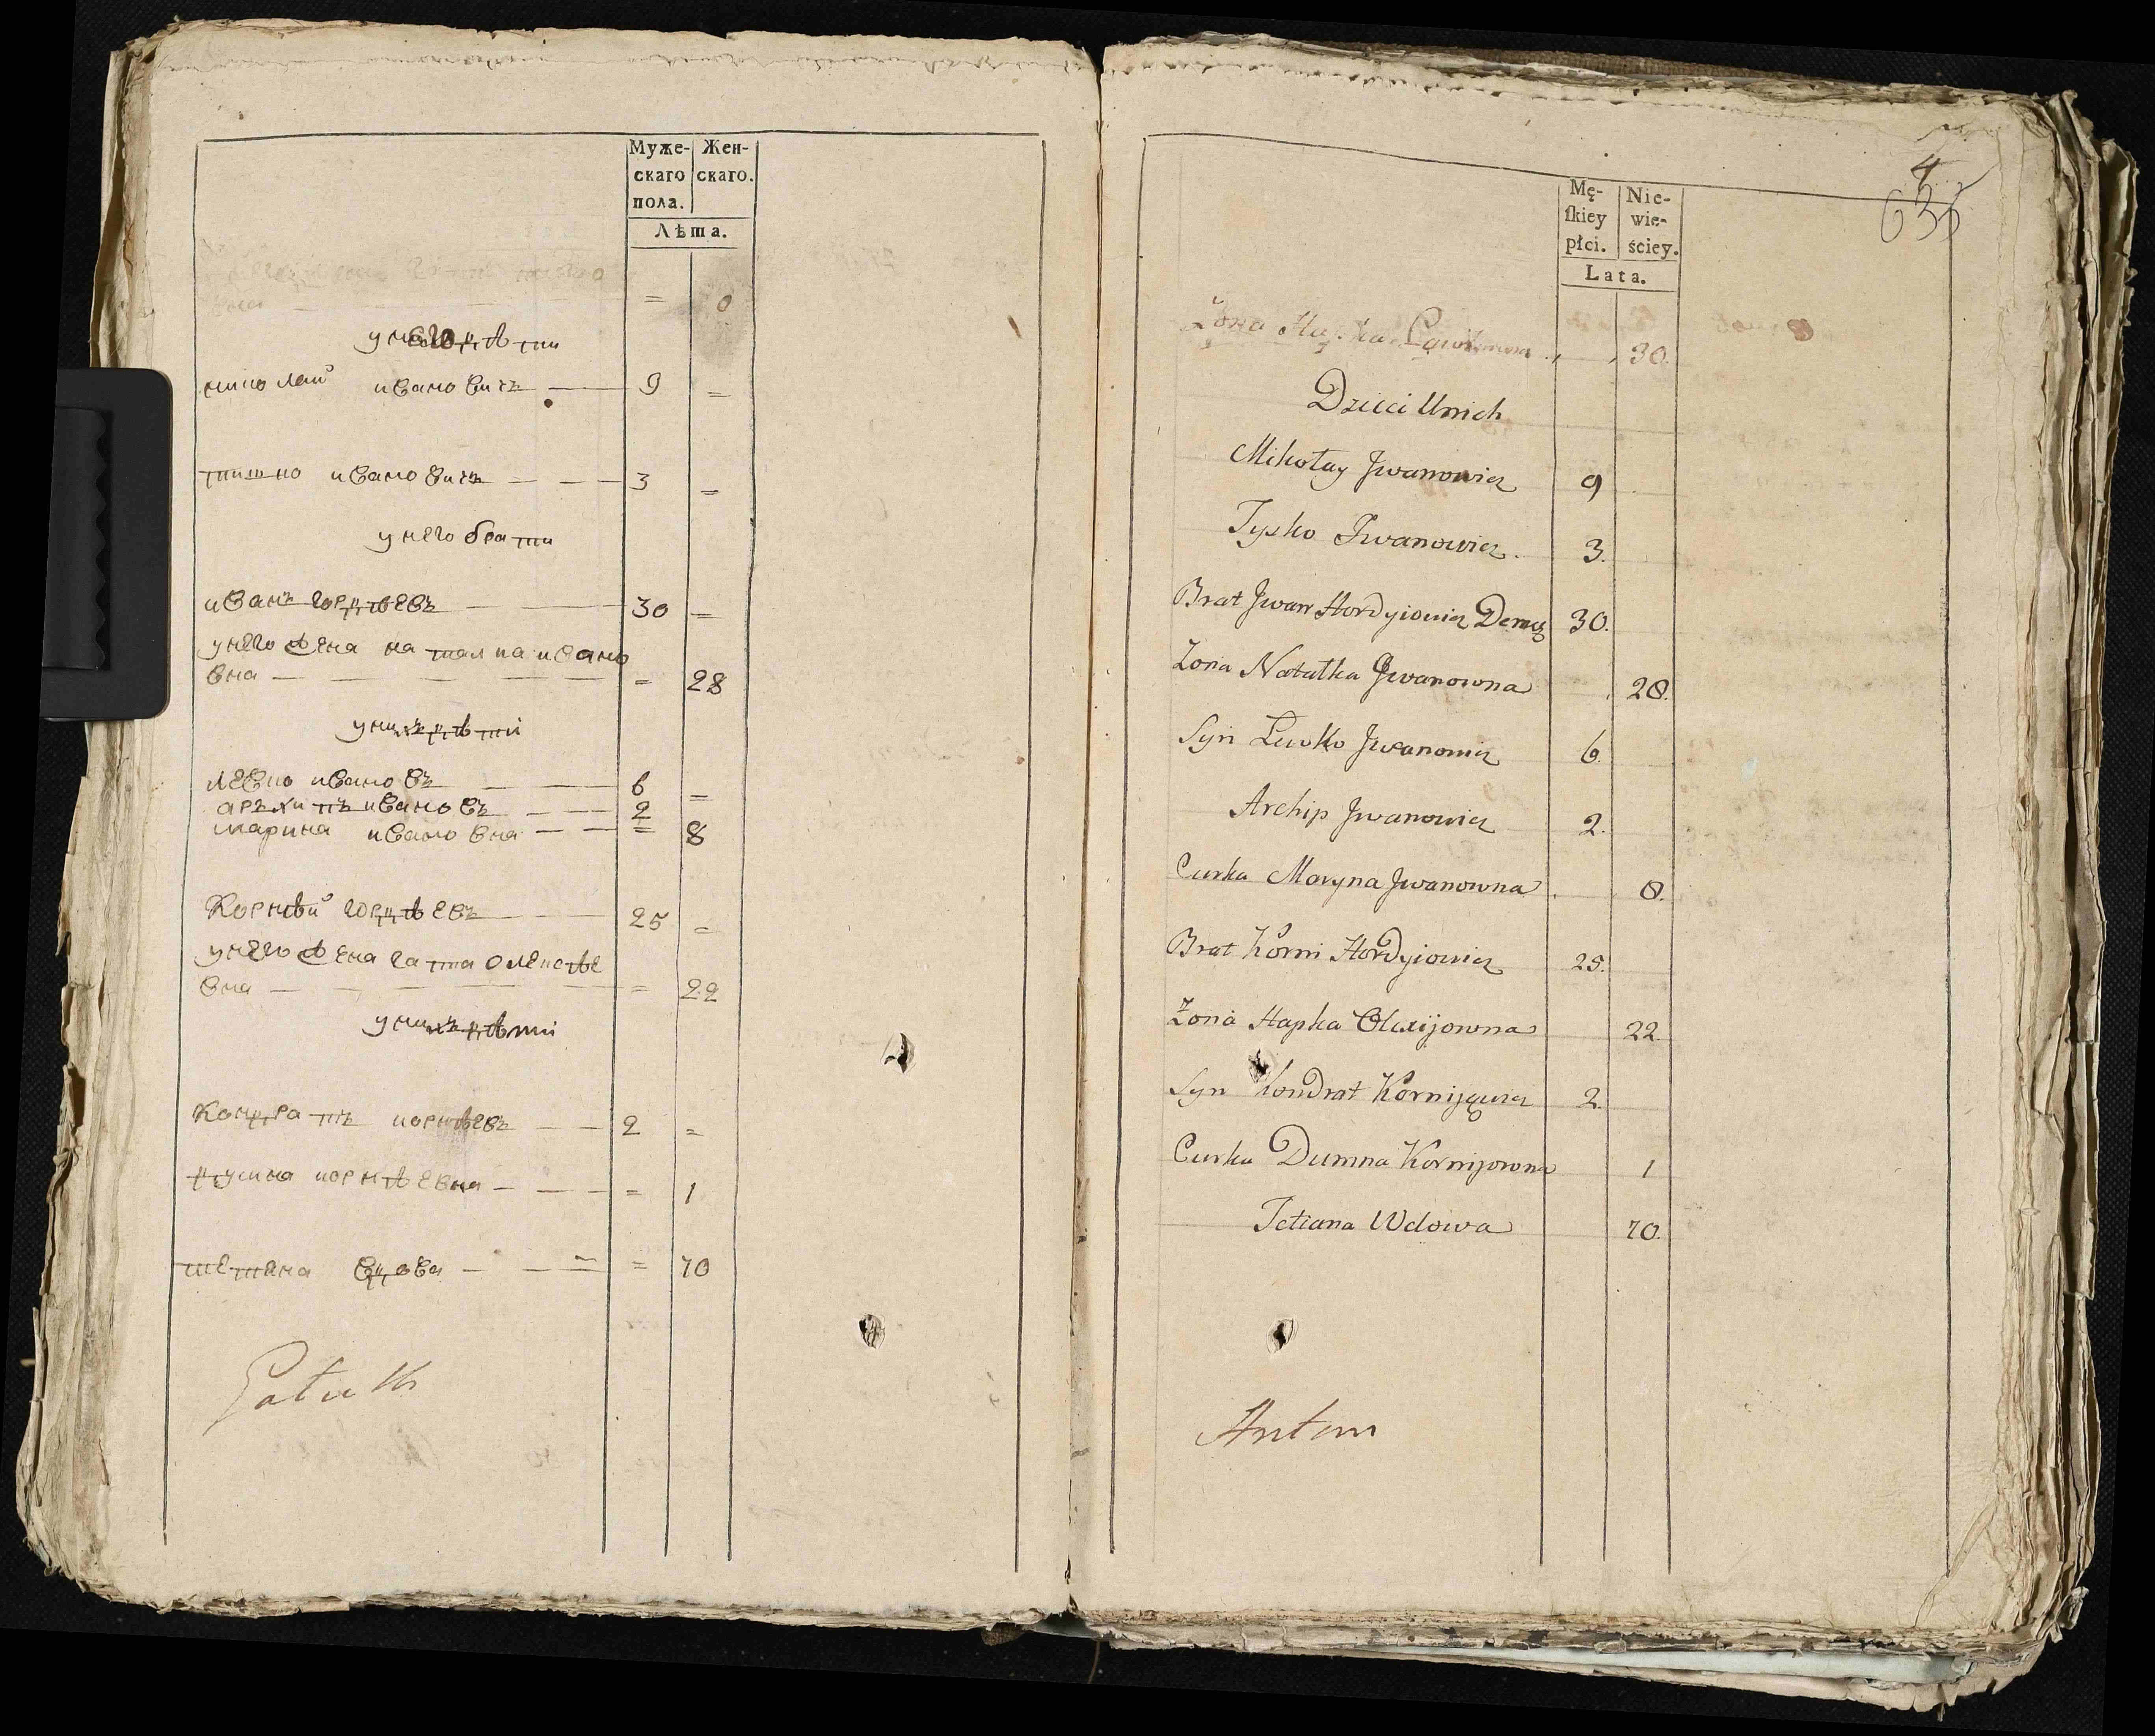 Муже-
скаго
пола.
Жен-
скаго.
Лѣта.
вна = 0
у него дѣти
николай ивановичъ 9 =
тишко ивановичъ 3 =
у него брати
иванъ гордѣевъ 30 =
у него жена наталка ивано
вна = 28
у нихъ дѣти
левко ивановъ 6 =
архипъ ивановъ 2
марина ивановна = 8
Корнѣй гордѣевъ 25 =
у него жена гапа олексѣе
вна = 22
у нихъ дѣти
Кондратъ корнѣевъ 2 =
думна корнѣевна = 1
тетяна вдова = 70
4
635
Mę-
ſkiey
płci.
Nie-
wie-
ściey.
Lata.
Żona 30.
Dzieci Unich
Mikołay Jwanowicz 9
Tyszko Jwanowicz. 3.
Brat Jwan Hordyiowicz 30.
Żona Natałka Jwanowna 28.
Syn Lewko Jwanowicz 6.
Archip Jwanowicz 2.
Curka Maryna Jwanowna 8.
Brat Korni Hordyiowicz 25.
Żona Hapka Olexijowna 22.
Syn Kondrat Kornijowicz 2.
Curka Dumna Kornijowna 1
Tetiana Wdowa 70.
Antoni